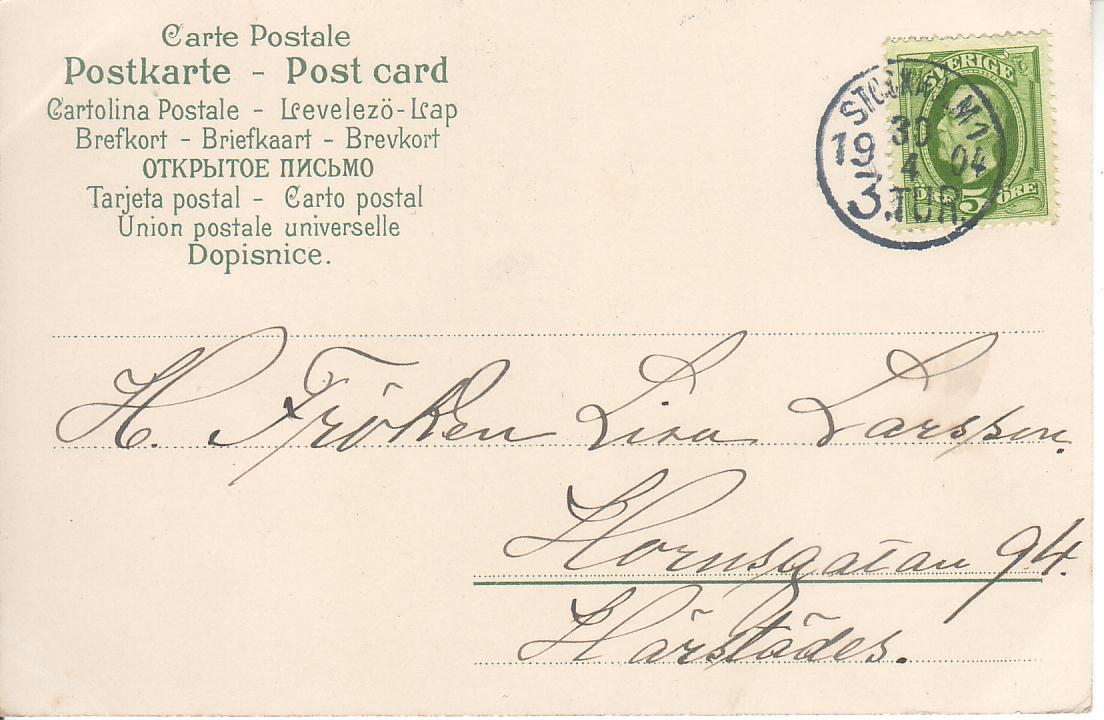 Carte Postale
Postkarte - Post card
Cartolina Postale - Levelezö-Lap
Brefkort - Briefkaart - Brevkort
ОТКРЫТОЕ ПИСЬМО
Tarjeta postal - Carto postal
Union postale universelle
Dopisnice.
SVERIGE
5 ÖRE
STOCKHOLM 1
30
19 4 04
3.TUR.
H. Fröken Lisa Larsson.
Hornsgatan 94.
Härstädes.